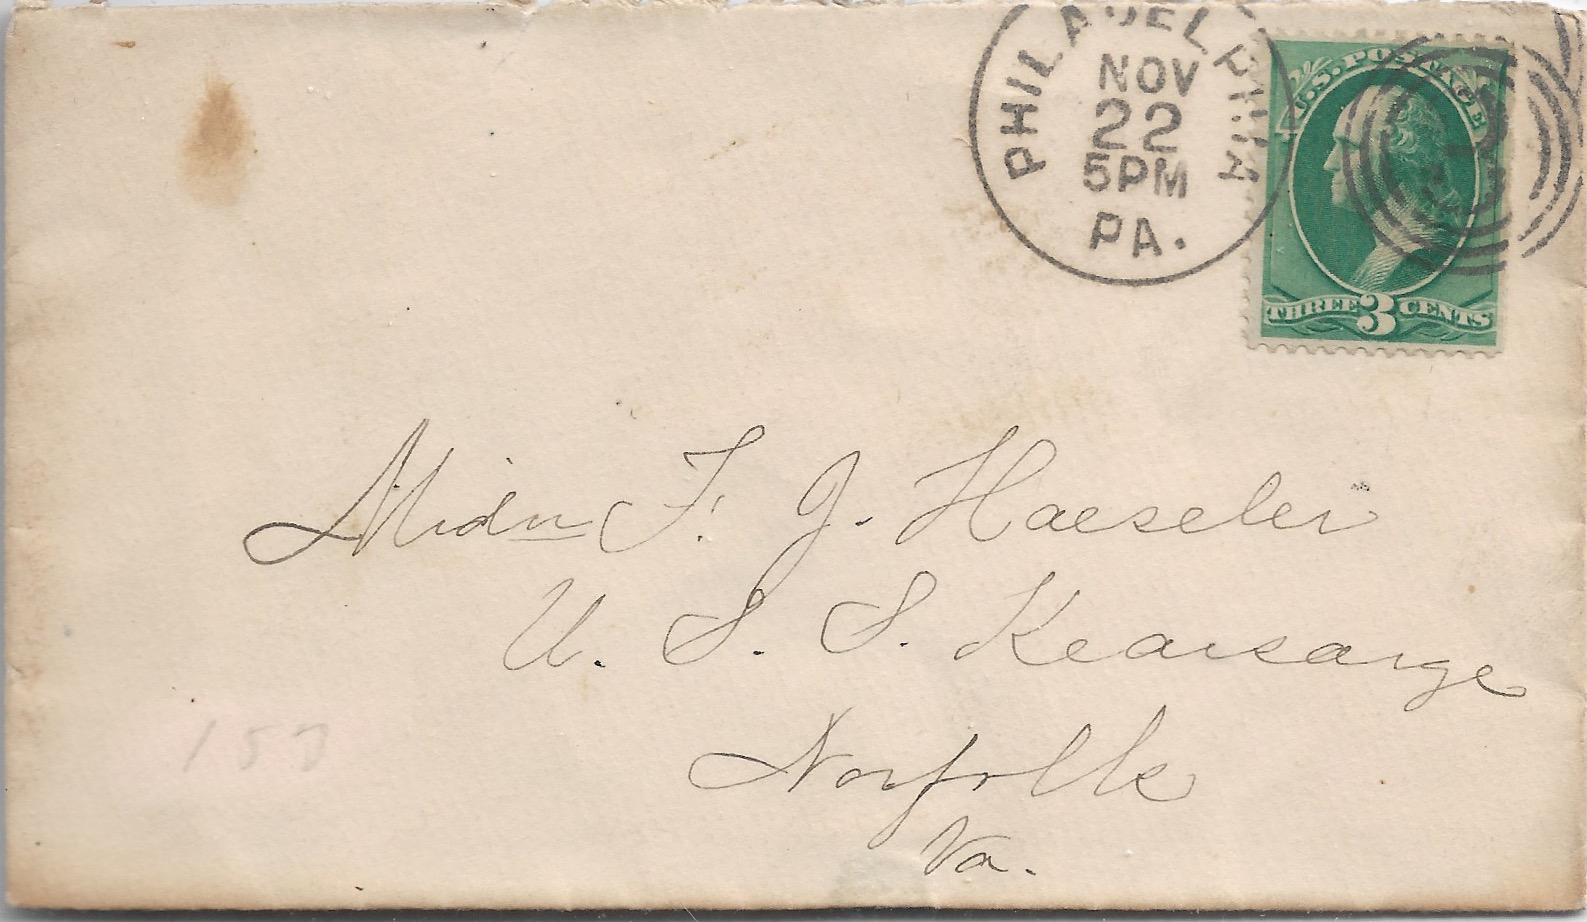 PHILADELPHIA
NOV
22
5PM
PA.
U.S. POSTAGE
THREE 3 CENTS
Midn F. J. Haeseler
U. S. S. Kearsarge
Norfolk
Va.